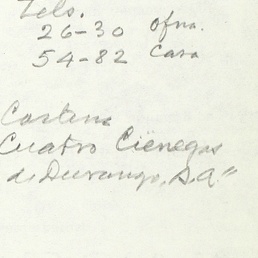 Tels.
26-30 ofna.
54-82 Casa
Cuatro Ciénegas
de Durango, S.A."